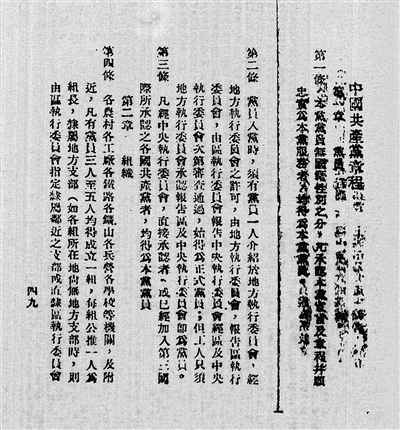 中國共產黨章程
第一章 黨員
第一條 本黨黨員無國籍性別之分,凡承認本黨宣言及章程并願
忠實爲本黨服務者,均得爲本黨黨員。
第二條 黨員入黨時,須有黨員一人介紹於地方執行委員會,經
地方執行委員會之許可,由地方執行委員會,報告區執行
委員會,由區執行委員會報告中央執行委員會經區及中央
執行委員會次第審查通過,始得爲正式黨員;但工人只須
地方執行委員會承認報告區及中央執行委員會即爲黨員。
第三條 凡經中央執行委員會,直接承認者,或已經加入第三國
際所承認之各國共產黨者,均得爲本黨黨員
第二章 組織
第四條 各農村各工廠各鐵路各鑛山各兵營各學校等機關,及附
近,凡有黨員三人至五人均得成立一組,每組公推一人爲
組長,隸屬地方支部(如各組所在地尙無地方支部時,則
由區執行委員會指定隸屬鄰近之支部或直隸區執行委員會
四九